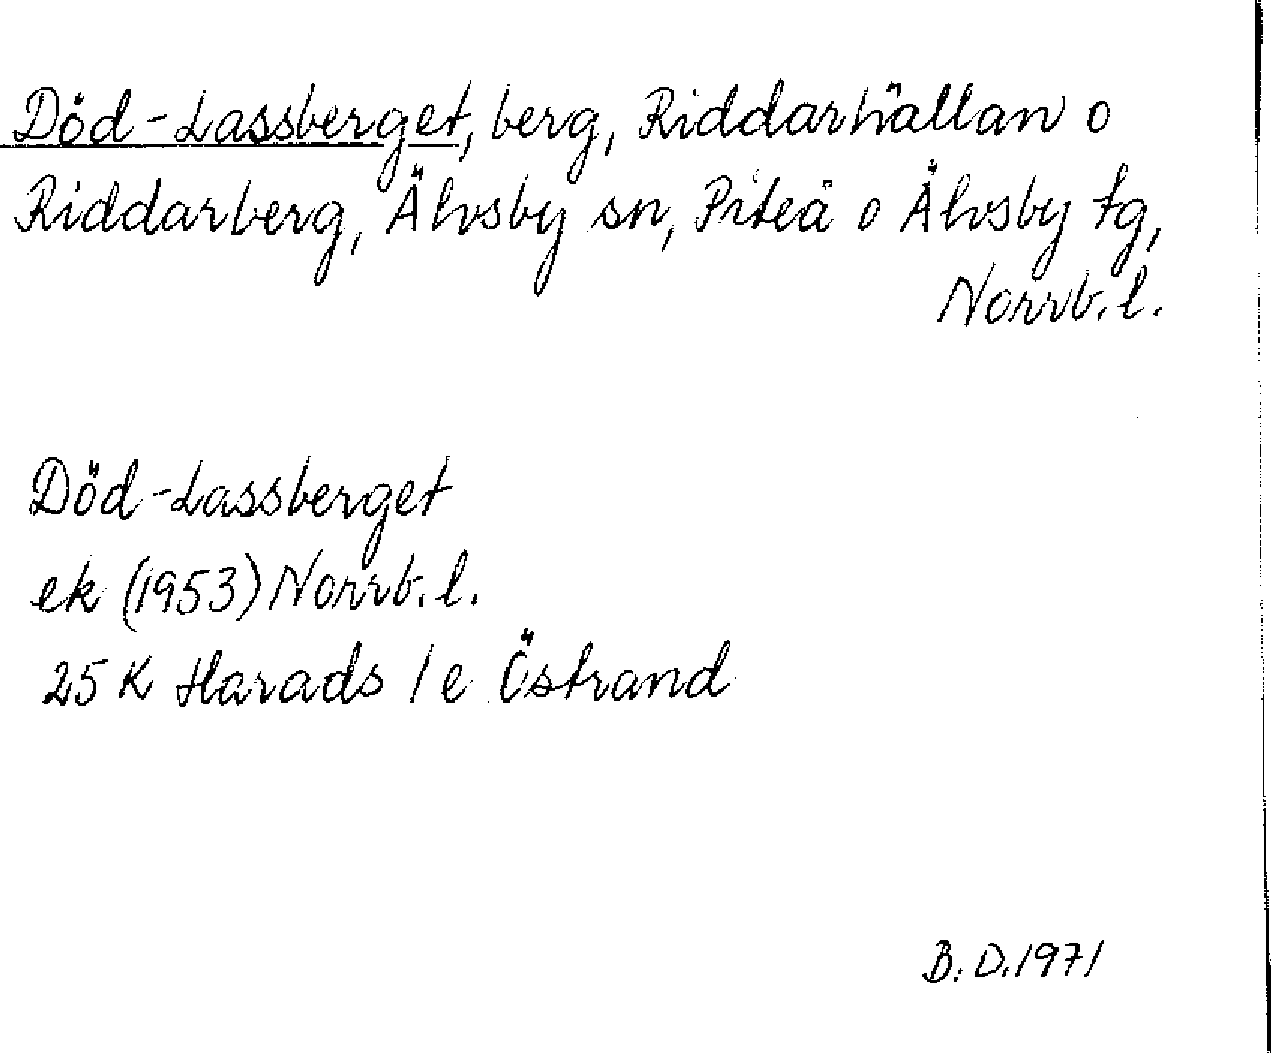 Död-Lassberget, berg, Riddarhällan o
Riddarberg, Älvsby sn, Piteå o Älvsby tg,
Norrb. l.
Död-Lassberget
ek (1953) Norrb. l.
25 K Harads / e Östrand
B. D. 1971